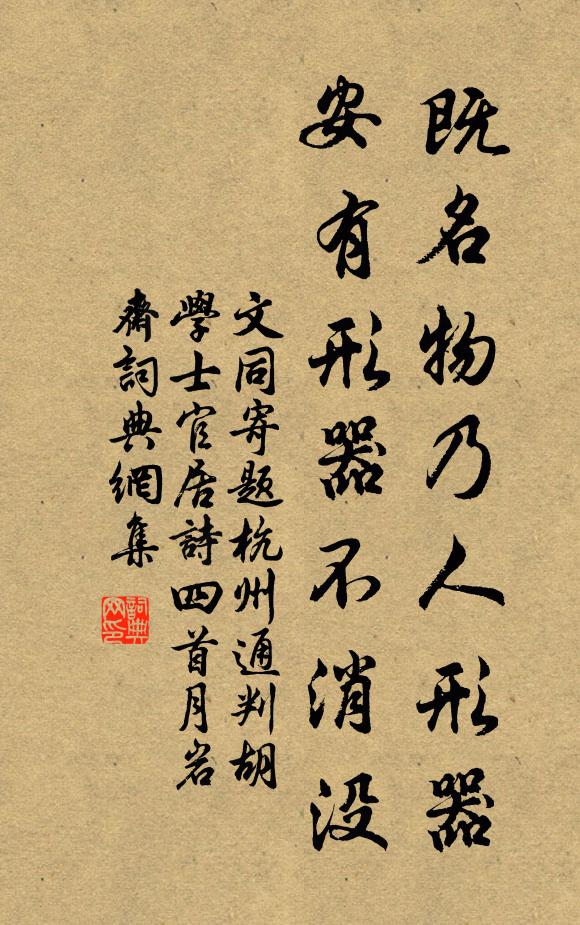 既名物乃人形器
安有形器不消没
文同寄题杭州通判胡
學士官居詩四首月岩
齋詞典網集
詞典
网印